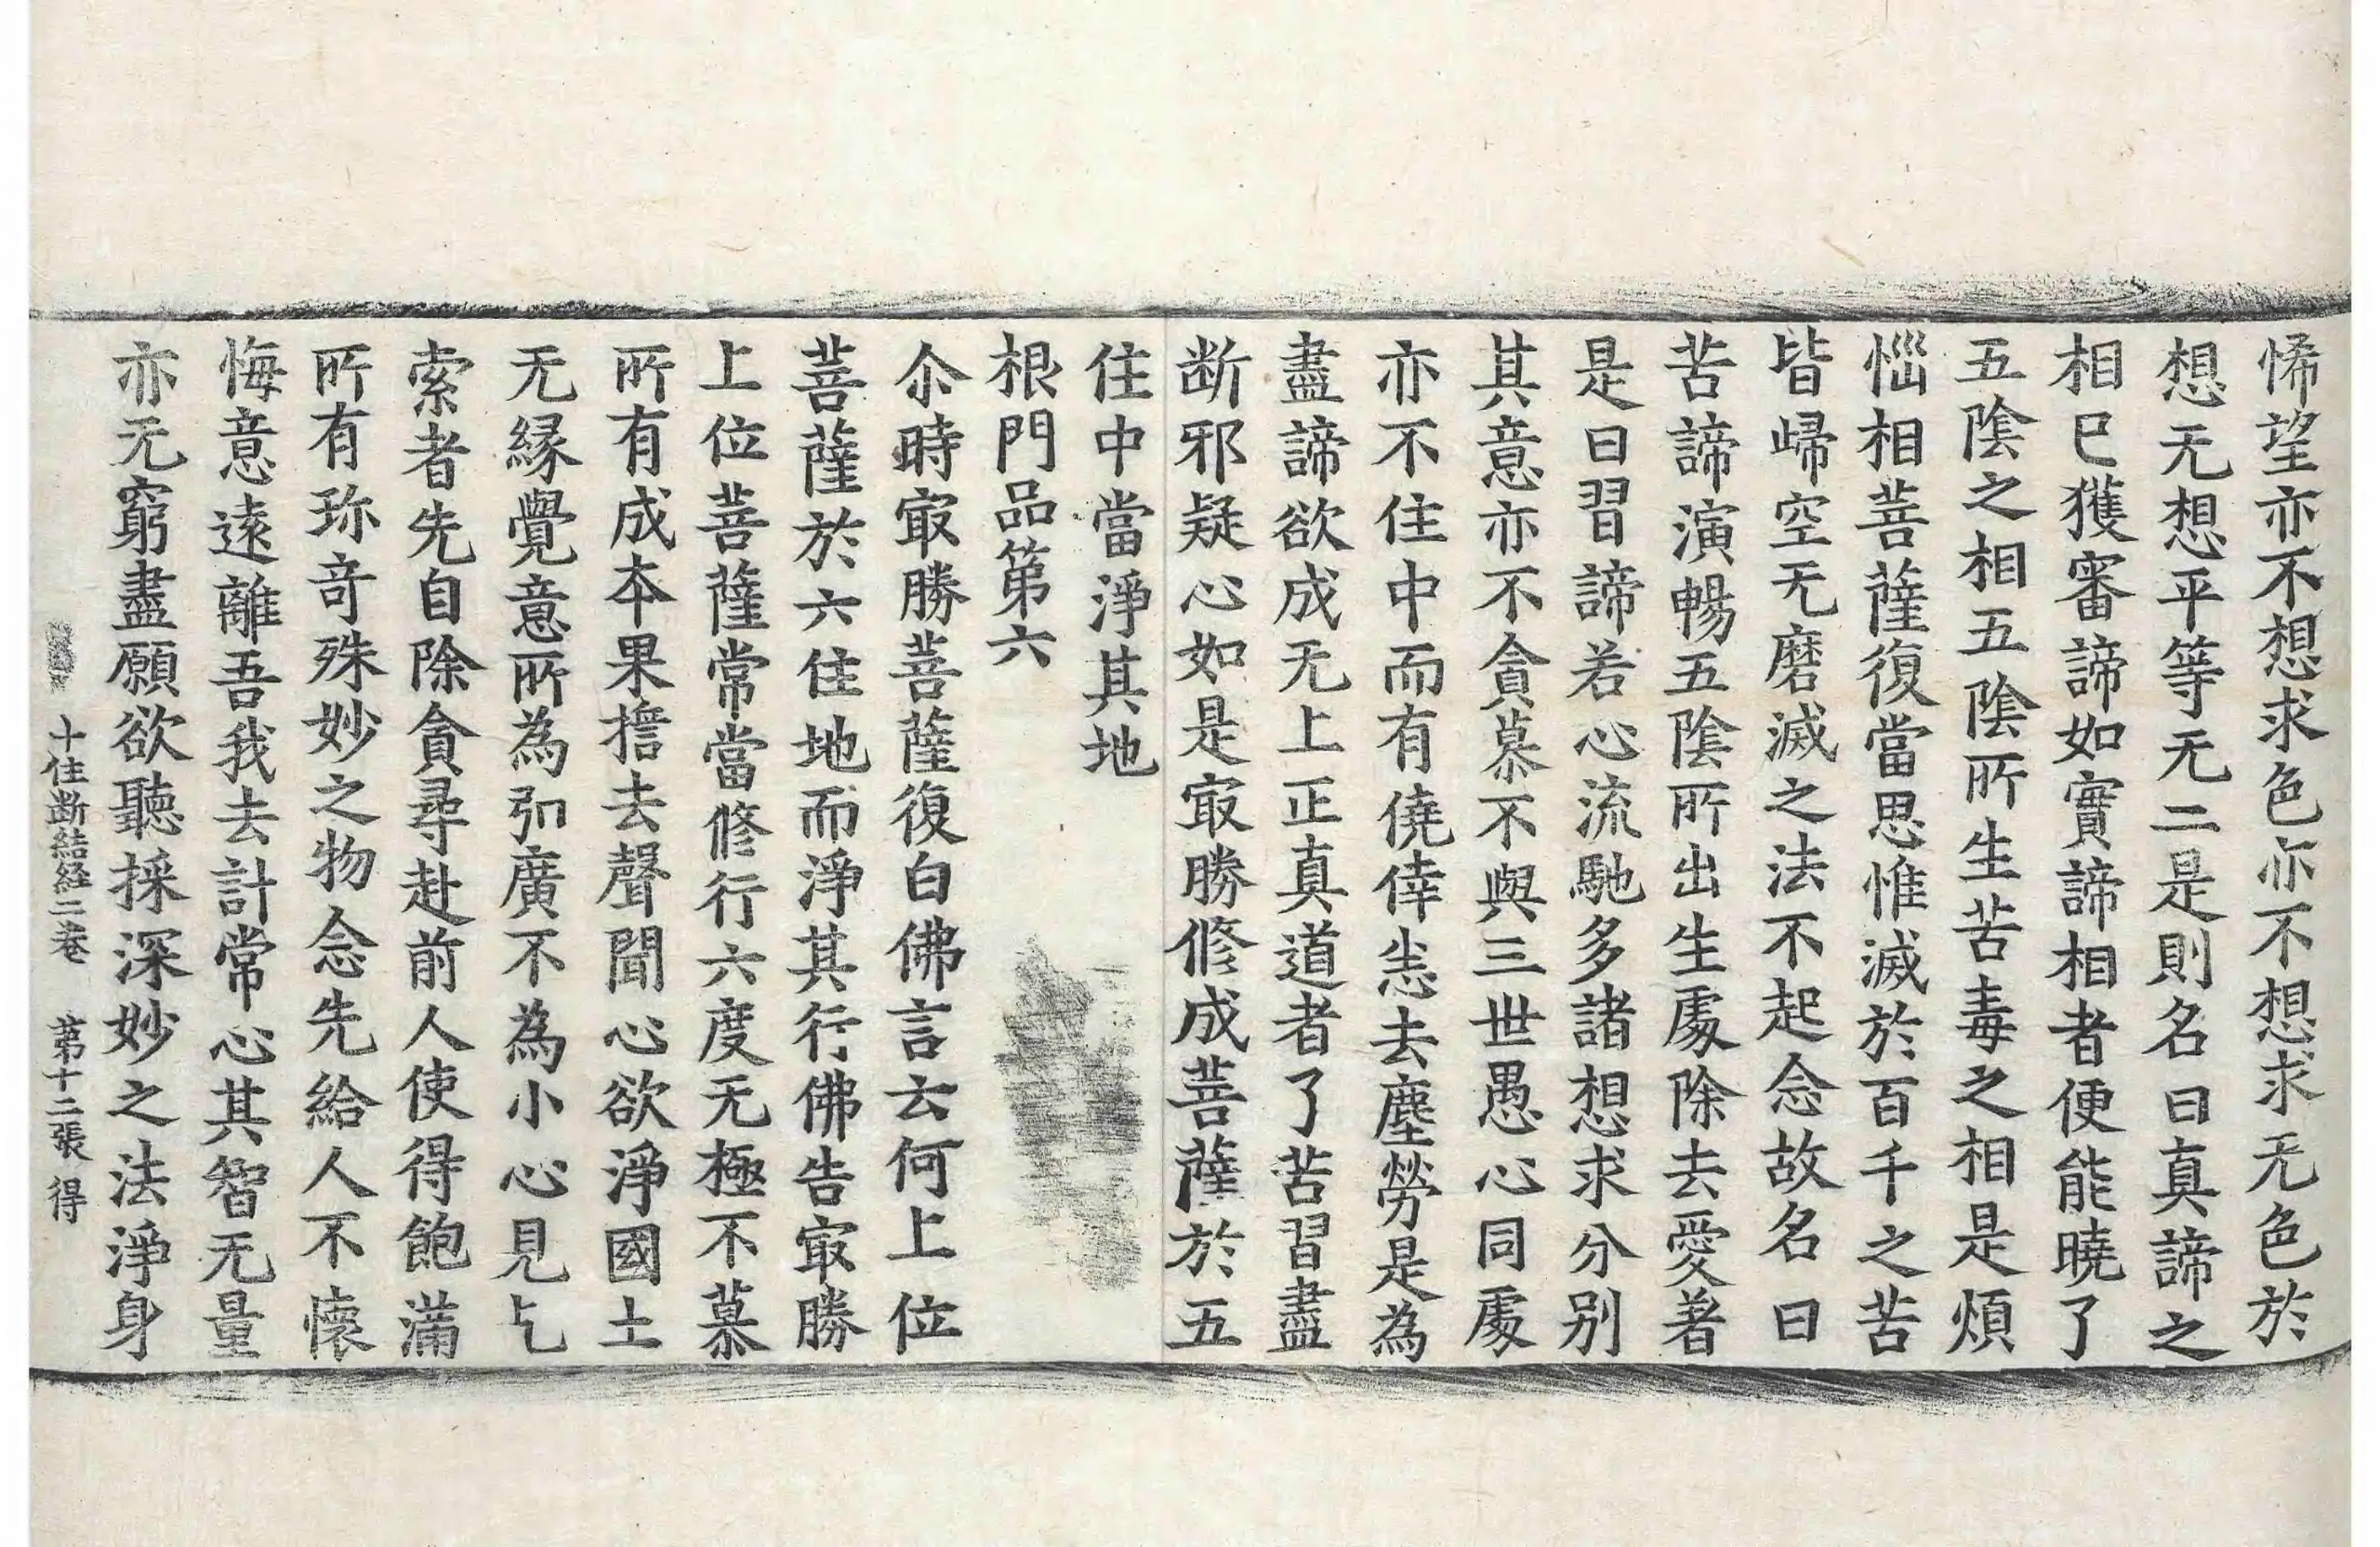 悕望亦不想求色亦不想求无色於
想无想平等无二是則名曰真諦之
相已獲審諦如實諦相者便能曉了
五陰之相五陰所生苦毒之相是煩
惱相菩薩復當思惟滅於百千之苦
皆歸空无磨滅之法不起念故名曰
苦諦演暢五陰所出生處除去愛著
是曰習諦若心流馳多諸想求分别
其意亦不貪慕不與三世愚心同處
亦不住中而有僥倖恙去塵勞是為
盡諦欲成无上正真道者了苦習盡
断邪疑心如是㝡勝修成菩薩於五
住中當淨其地
根門品第六
尒時㝡勝菩薩復白佛言云何上位
菩薩於六住地而淨其行佛告㝡勝
上位菩薩常當修行六度无極不慕
所有成本果擔去聲聞心欲淨國土
无縁覺意所為弘廣不為小心見乞
索者先自除貪尋赴前人使得飽滿
所有珎竒殊妙之物念先給人不懷
悔意遠離吾我去計常心其智无量
亦无窮盡願欲聽採深妙之法淨身
十住断結経二卷 第十二張 得